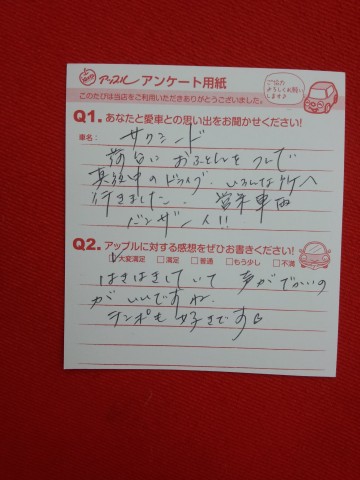 アップル アンケート用紙
ご協力
よろしくお願い
します♪
このたびは当店をご利用いただきありがとうございました。
Q1. あなたと愛車との思い出をお聞かせください!
車名: サクシード
荷台に おふとんをつんで
真夜中のドライブ. いろんな所へ
行きました.
バンザーイ!!
Q2. アップルに対する感想をぜひお書きください!
☑大変満足 □満足 □普通 □もう少し □不満
はきはきしていて 声がでかいの
がいいですね.
テンポも好きです